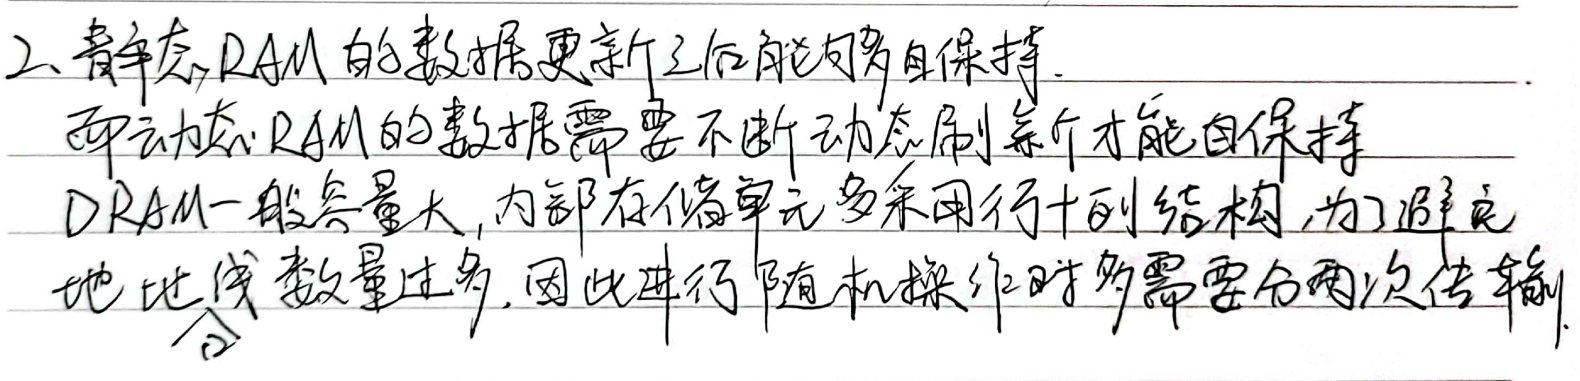 2、静态RAM的数据更新之后能够自保持.
而动态RAM的数据需要不断动态刷新才能自保持
DRAM一般容量大,内部存储单元多采用行+列结构,为了避免
地址线数量过多,因此进行随机操作时多需要分两次传输.